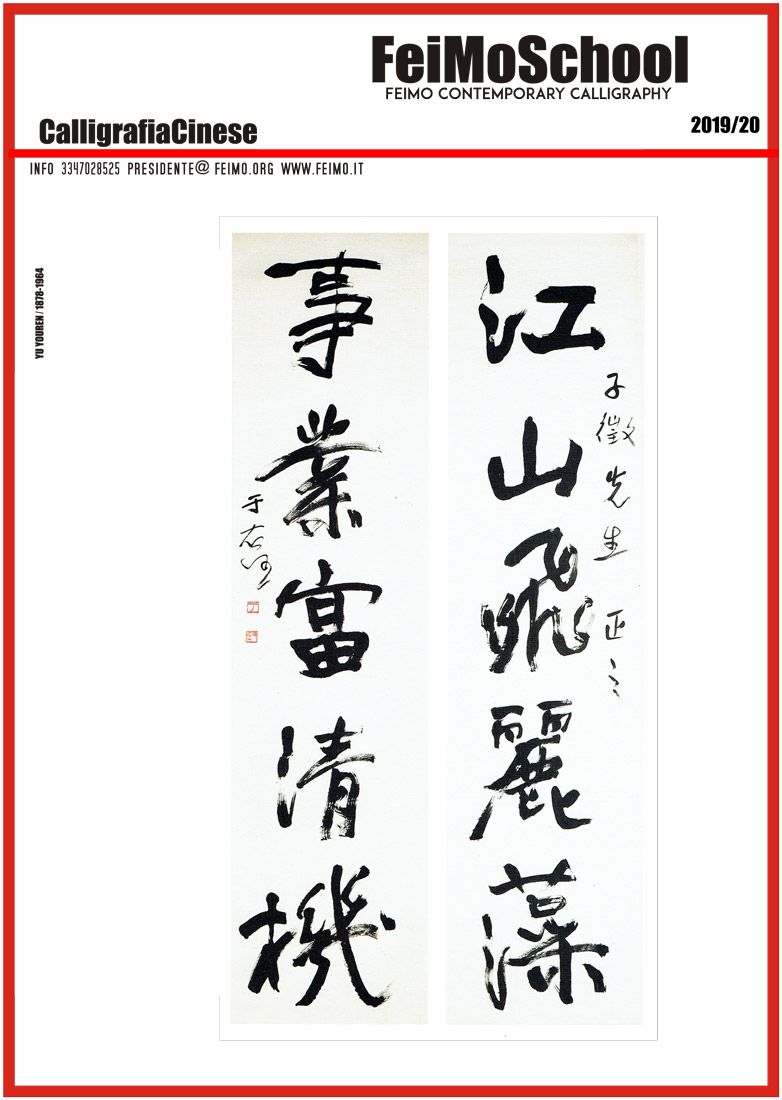 FeiMoSchool
FEIMO CONTEMPORARY CALLIGRAPHY
CalligrafiaCinese
2019/20
INFO 3347028525 PRESIDENTE@ FEIMO.ORG WWW.FEIMO.IT
YU YOUREN / 1878-1964
江山飛麗藻
子徵先生 正之
事業富清機
于右任